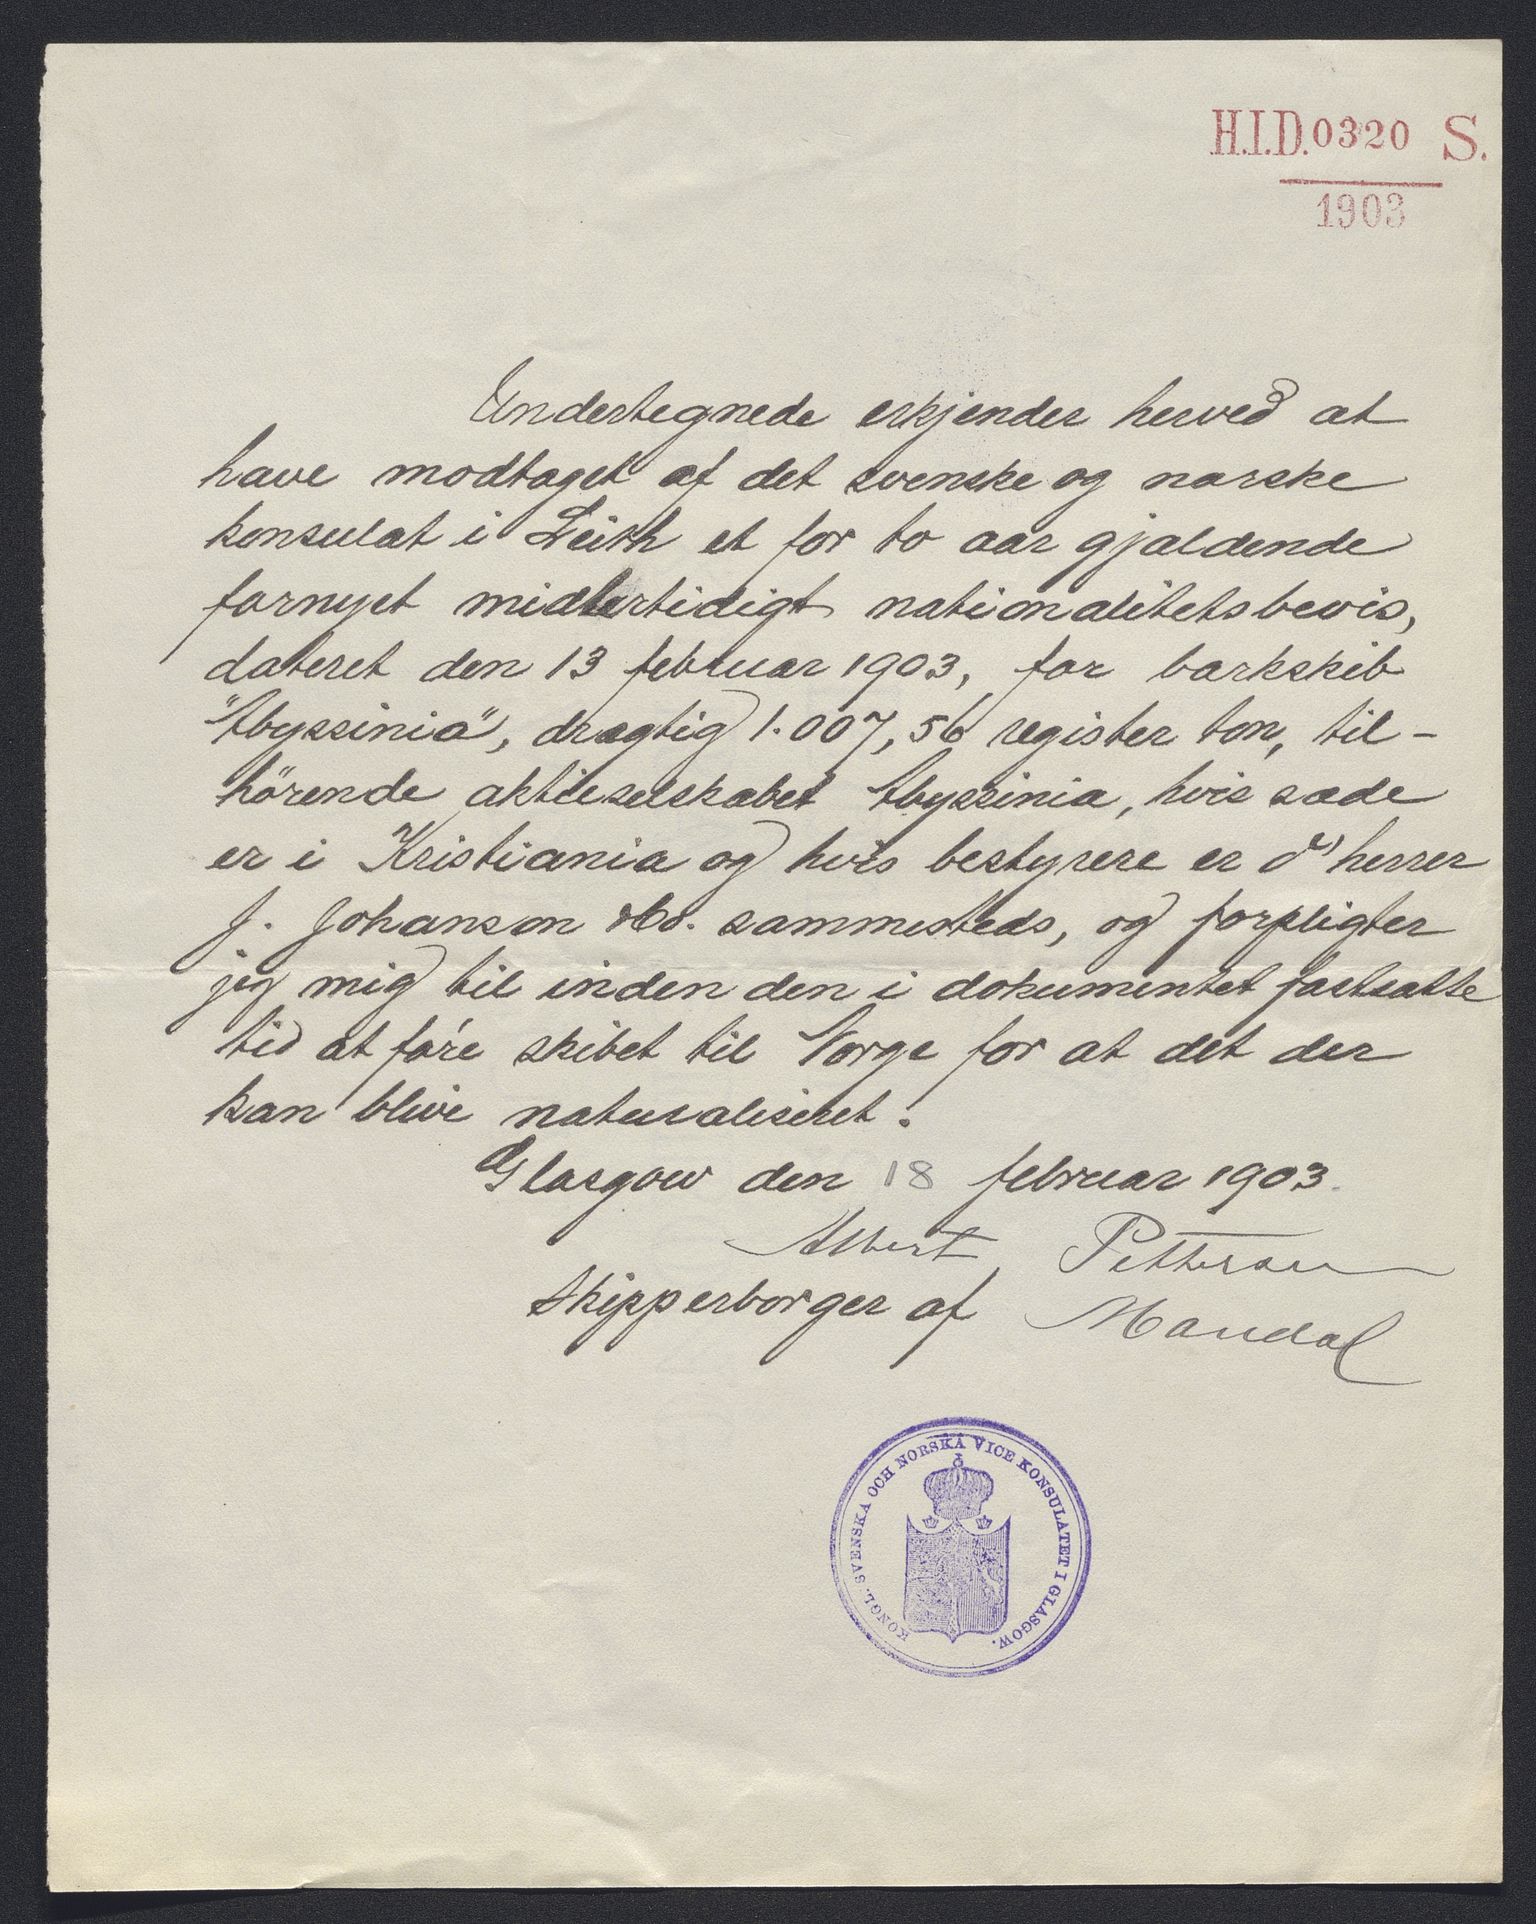 H.I.D. 0320 S.
1903
Undertegnede erkjender herved at
have modtaget af det svenske og norske
konsulat i Leith et for to aar gjældende
fornyet midlertidigt nationalitetsbevis,
dateret den 13 februar 1903, for barkskib
"Abyssinia", drægtig 1.007,56 register ton, til-
hörende aktieselskabet Abyssinia, hvis sæde
er i Kristiania og hvis bestyrere er dr herrer
J. Johanson & Co. sammesteds, og forpligter
jeg mig til inden den i dokumentet fastsatte
tid at före skibet til Norge for at det der
kan blive naturaliseret.
Glasgow den 18 februar 1903.
Albert Pettersen
Skipperborger af Mandal
KONGL. SVENSKA OCH NORSKA VICE KONSULATET I GLASGOW.